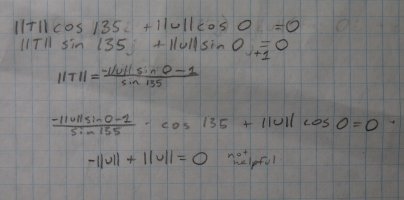 ||T|| cos 135 i + ||u|| cos 0 = 0
||T|| sin 135 j + ||u|| sin 0 j+1 = 0
||T|| = -||u|| sin 0 - 1 / sin 135
-||u|| sin 0 - 1 / sin 135 · cos 135 + ||u|| cos 0 = 0
-||u|| + ||u|| = 0 not helpful